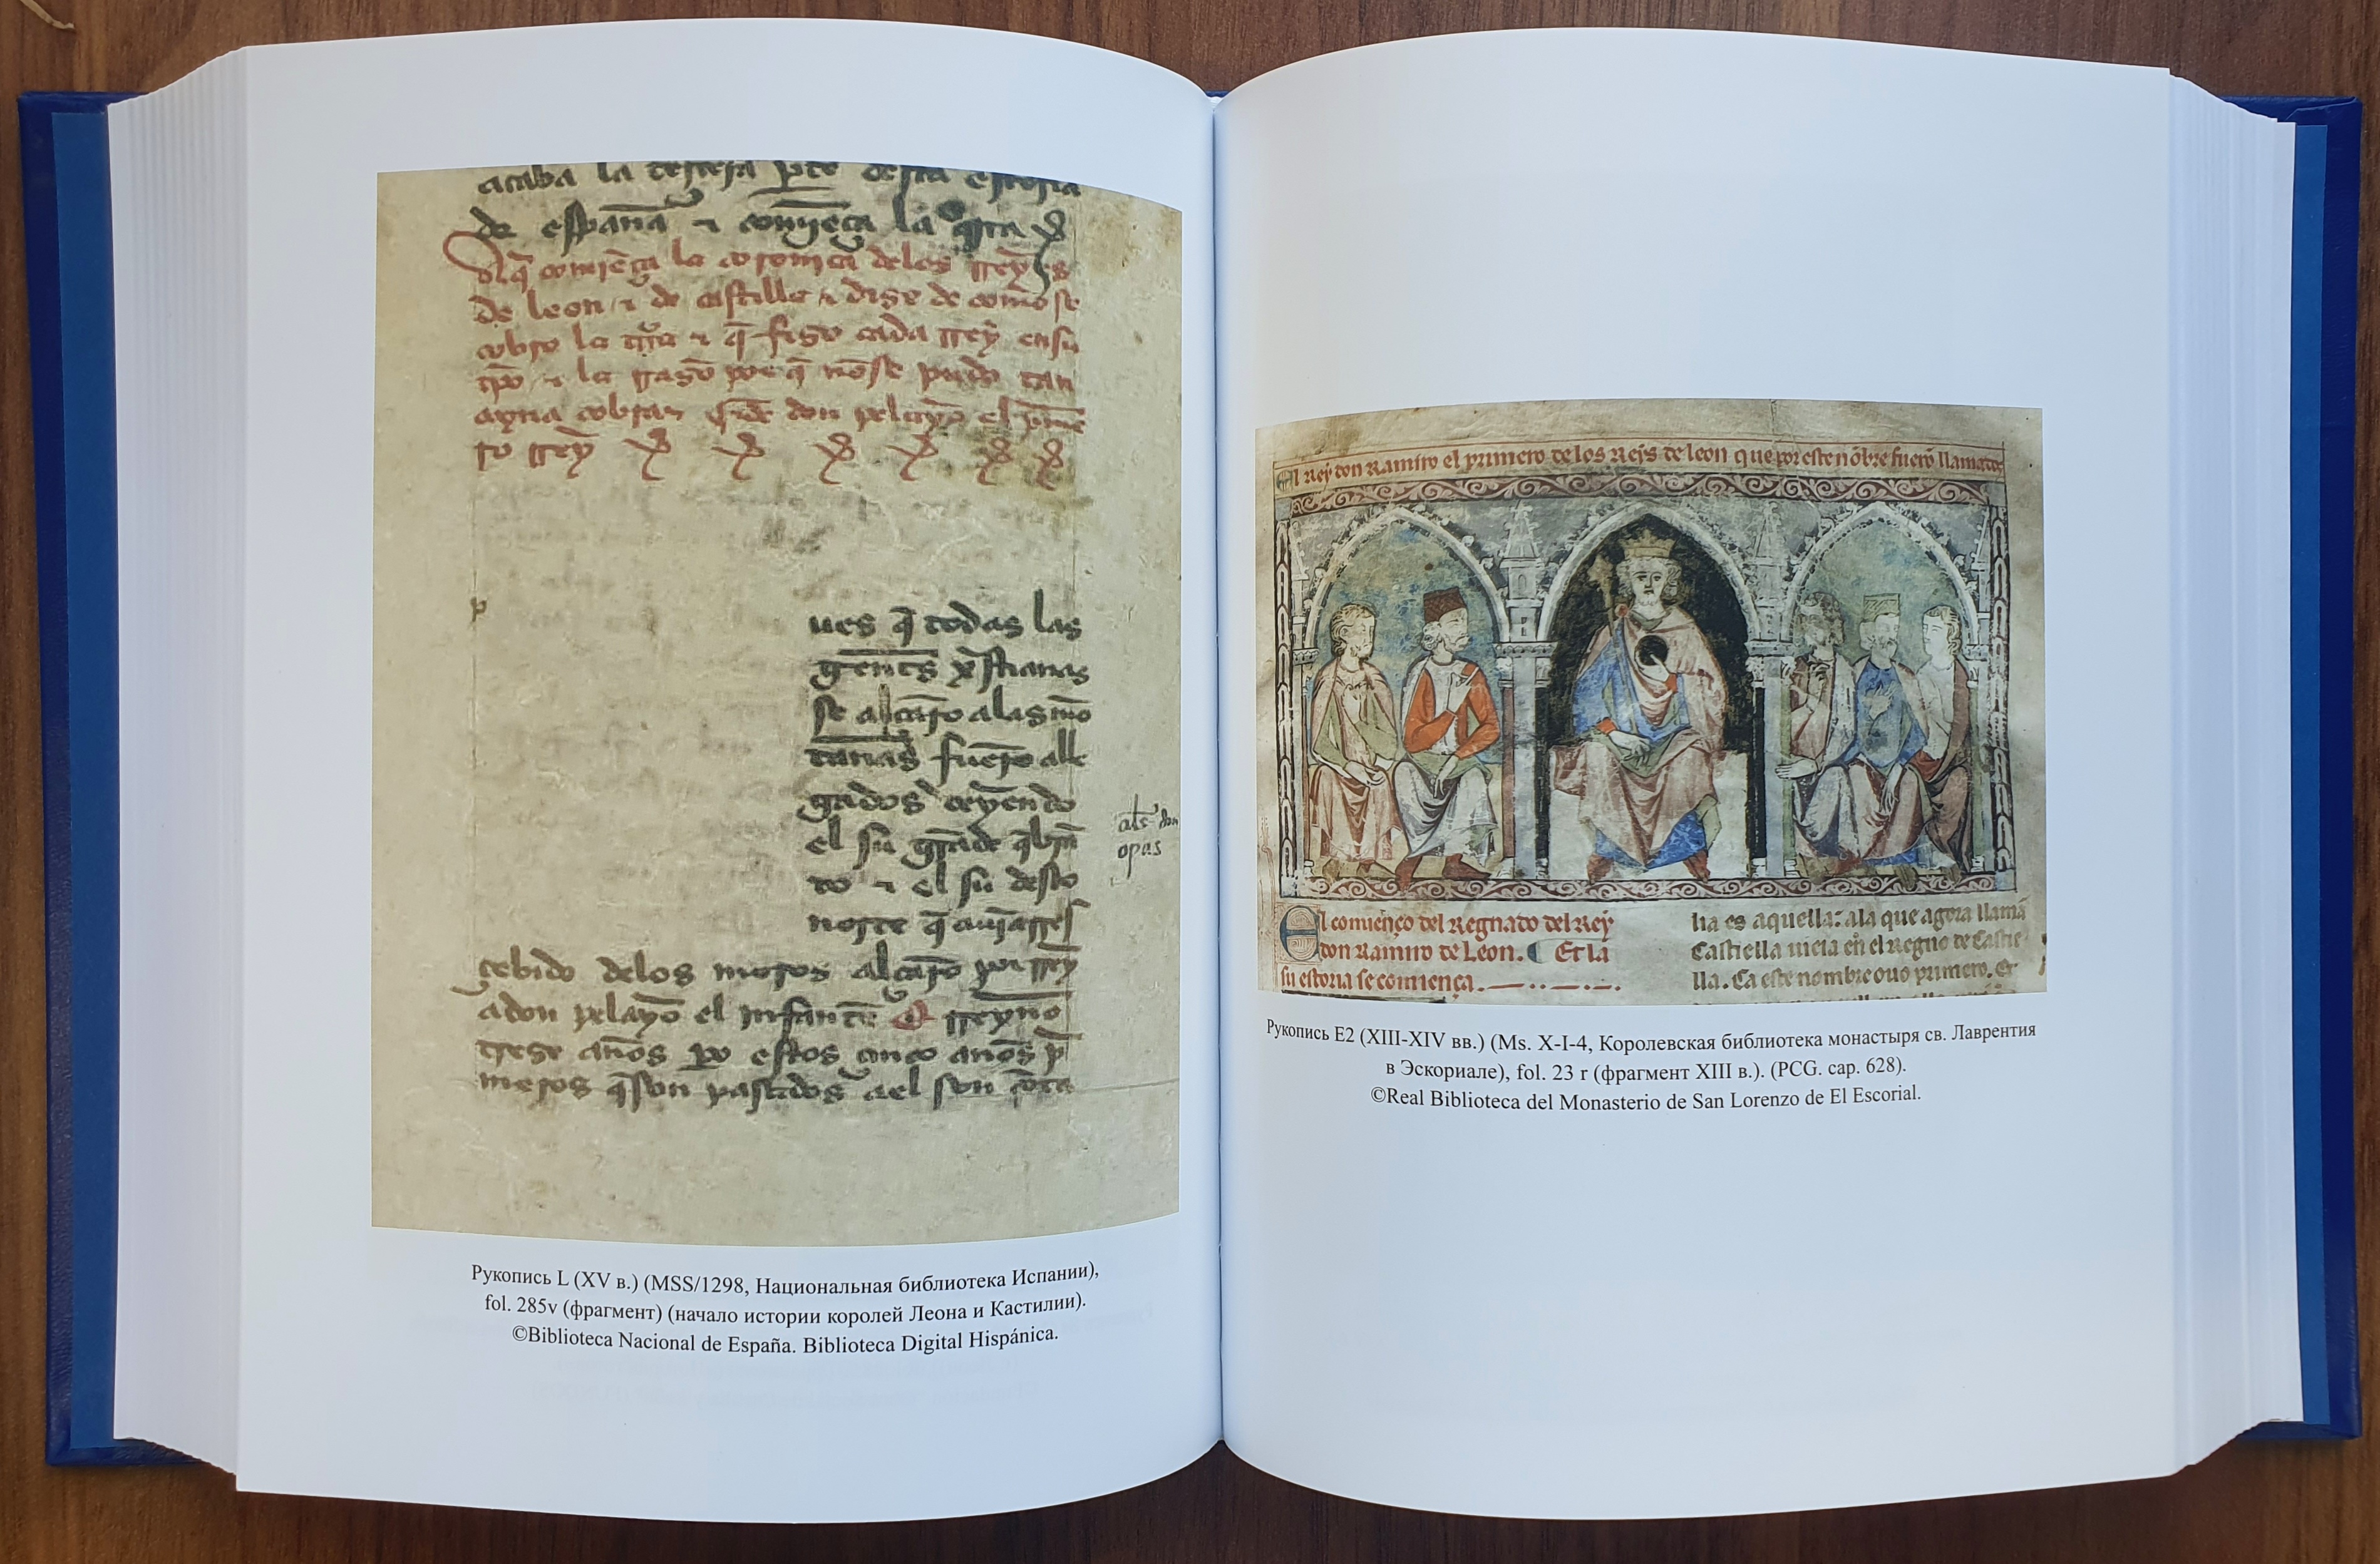 acaba la tercera pte desta estoria
de españa ⁊ comjença la qrta
aq̄ comjēça la coronjca delos rreyes
de leon ⁊ de castilla ⁊ dise de commo se
cobro la trra ⁊ q̄ fiso cada rrey en su
tpō ⁊ la rrasō por q̄ nōse pudo tan
ayna cobrar don pelayo el prime
ro rrey
p
ues q̄ todas las
gentes xp̄stianas
se alçarō alas mō
tanas fuerō alle
gados veyendo
el su grāde q̄brā
to ⁊ el su deso
norre q̄ auiā rres
çebido delos moros alçarō por rrey
adon pelayo el infante rreyno
trese años po estos cinco años p̄
meros q̄ son pasados ael son cōta
opas
Рукопись L (XV в.) (MSS/1298, Национальная библиотека Испании),
fol. 285v (фрагмент) (начало истории королей Леона и Кастилии).
©Biblioteca Nacional de España. Biblioteca Digital Hispánica.
El Rey don Ramiro el primero de los Reys de leon que por este nōbre fuerō llamados
El comienço del Regnado del Rey
don Ramiro de Leon. Et la
su estoria se comiença.
lia es aquella: ala que agora llamā
Castiella uieia en el Regno de Castie
lla. Ca este nombre ouo primero. Et
Рукопись E2 (XIII-XIV вв.) (Ms. X-I-4, Королевская библиотека монастыря св. Лаврентия
в Эскориале), fol. 23 r (фрагмент XIII в.). (PCG. cap. 628).
©Real Biblioteca del Monasterio de San Lorenzo de El Escorial.